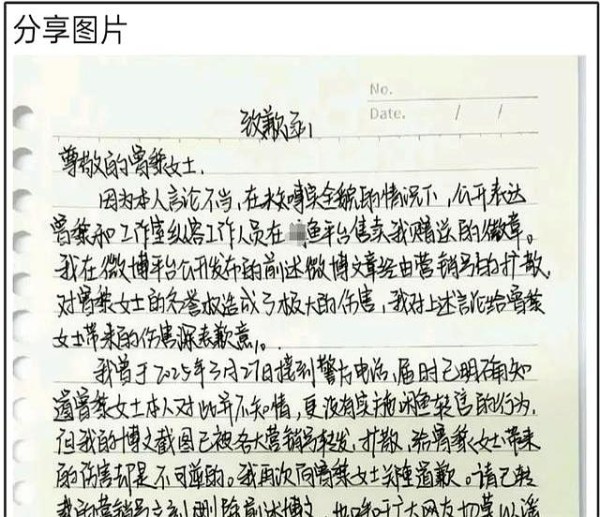 分享图片
No.
Date. / /
致歉函
尊敬的曾黎女士.
因为本人言论不当,在未知事实全貌的情况下,公开表达
曾黎和工作室纵容工作人员在 鱼平台售卖我赠送的徽章。
我在微博平台公开发布的前述微博文章经由营销号的扩散,
对曾黎女士的名誉权造成了极大的伤害,我对上述言论给曾黎
女士带来的伤害深表歉意。
我曾于2025年3月27日接到警方电话,届时已明确知
道曾黎女士本人对此并不知情,更没有实施闲鱼转售的行为.
但我的博文截图已被各大营销号转发,扩散,给曾黎女士带来
的伤害却是不可逆的。我再次向曾黎女士关键道歉。请已转
载的营销号立刻删除前述博文,也呼吁广大网友切莫以谣